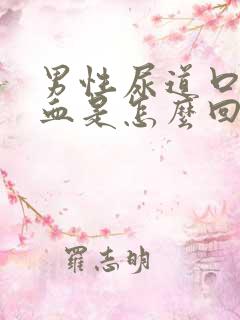 男性尿道口
血是怎麼回
羅志明